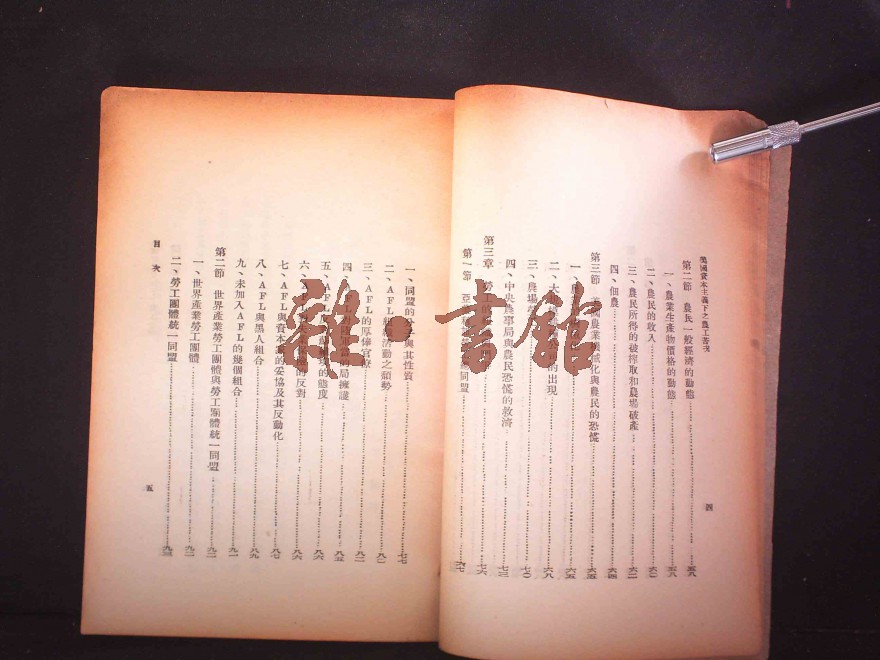 美國資本主義下之農工苦况
第二節 農民一般經濟的動態 五八
一、農業生產物價格的動態 五八
二、農民的收入 六〇
三、農民所得的被榨取和農場破產 六二
四、佃農 六四
第三節 農業 械化與農民的恐慌 六五
一、農 六五
二、大 的出現 六八
三、農場勞 七〇
四、中央農事局與農民恐慌的救濟 七三
第三章 勞工的 七六
第一節 同盟 七七
四
一、同盟的 與其性質 七七
二、AFL組 活動之傾勢 八〇
三、AFL的 官僚 八二
四、 的局擁護 八五
五、AFL 的態度 八六
六、AFL 的反對 八六
七、AFL與資本 的妥協及其反動化 八七
八、AFL與黑人組合 八九
九、未加入AFL的幾個組合 九一
第二節 世界產業勞工團體與勞工團體統一同盟 九二
一、世界產業勞工團體 九二
二、勞工團體統一同盟 九三
目次
五
雜·書館